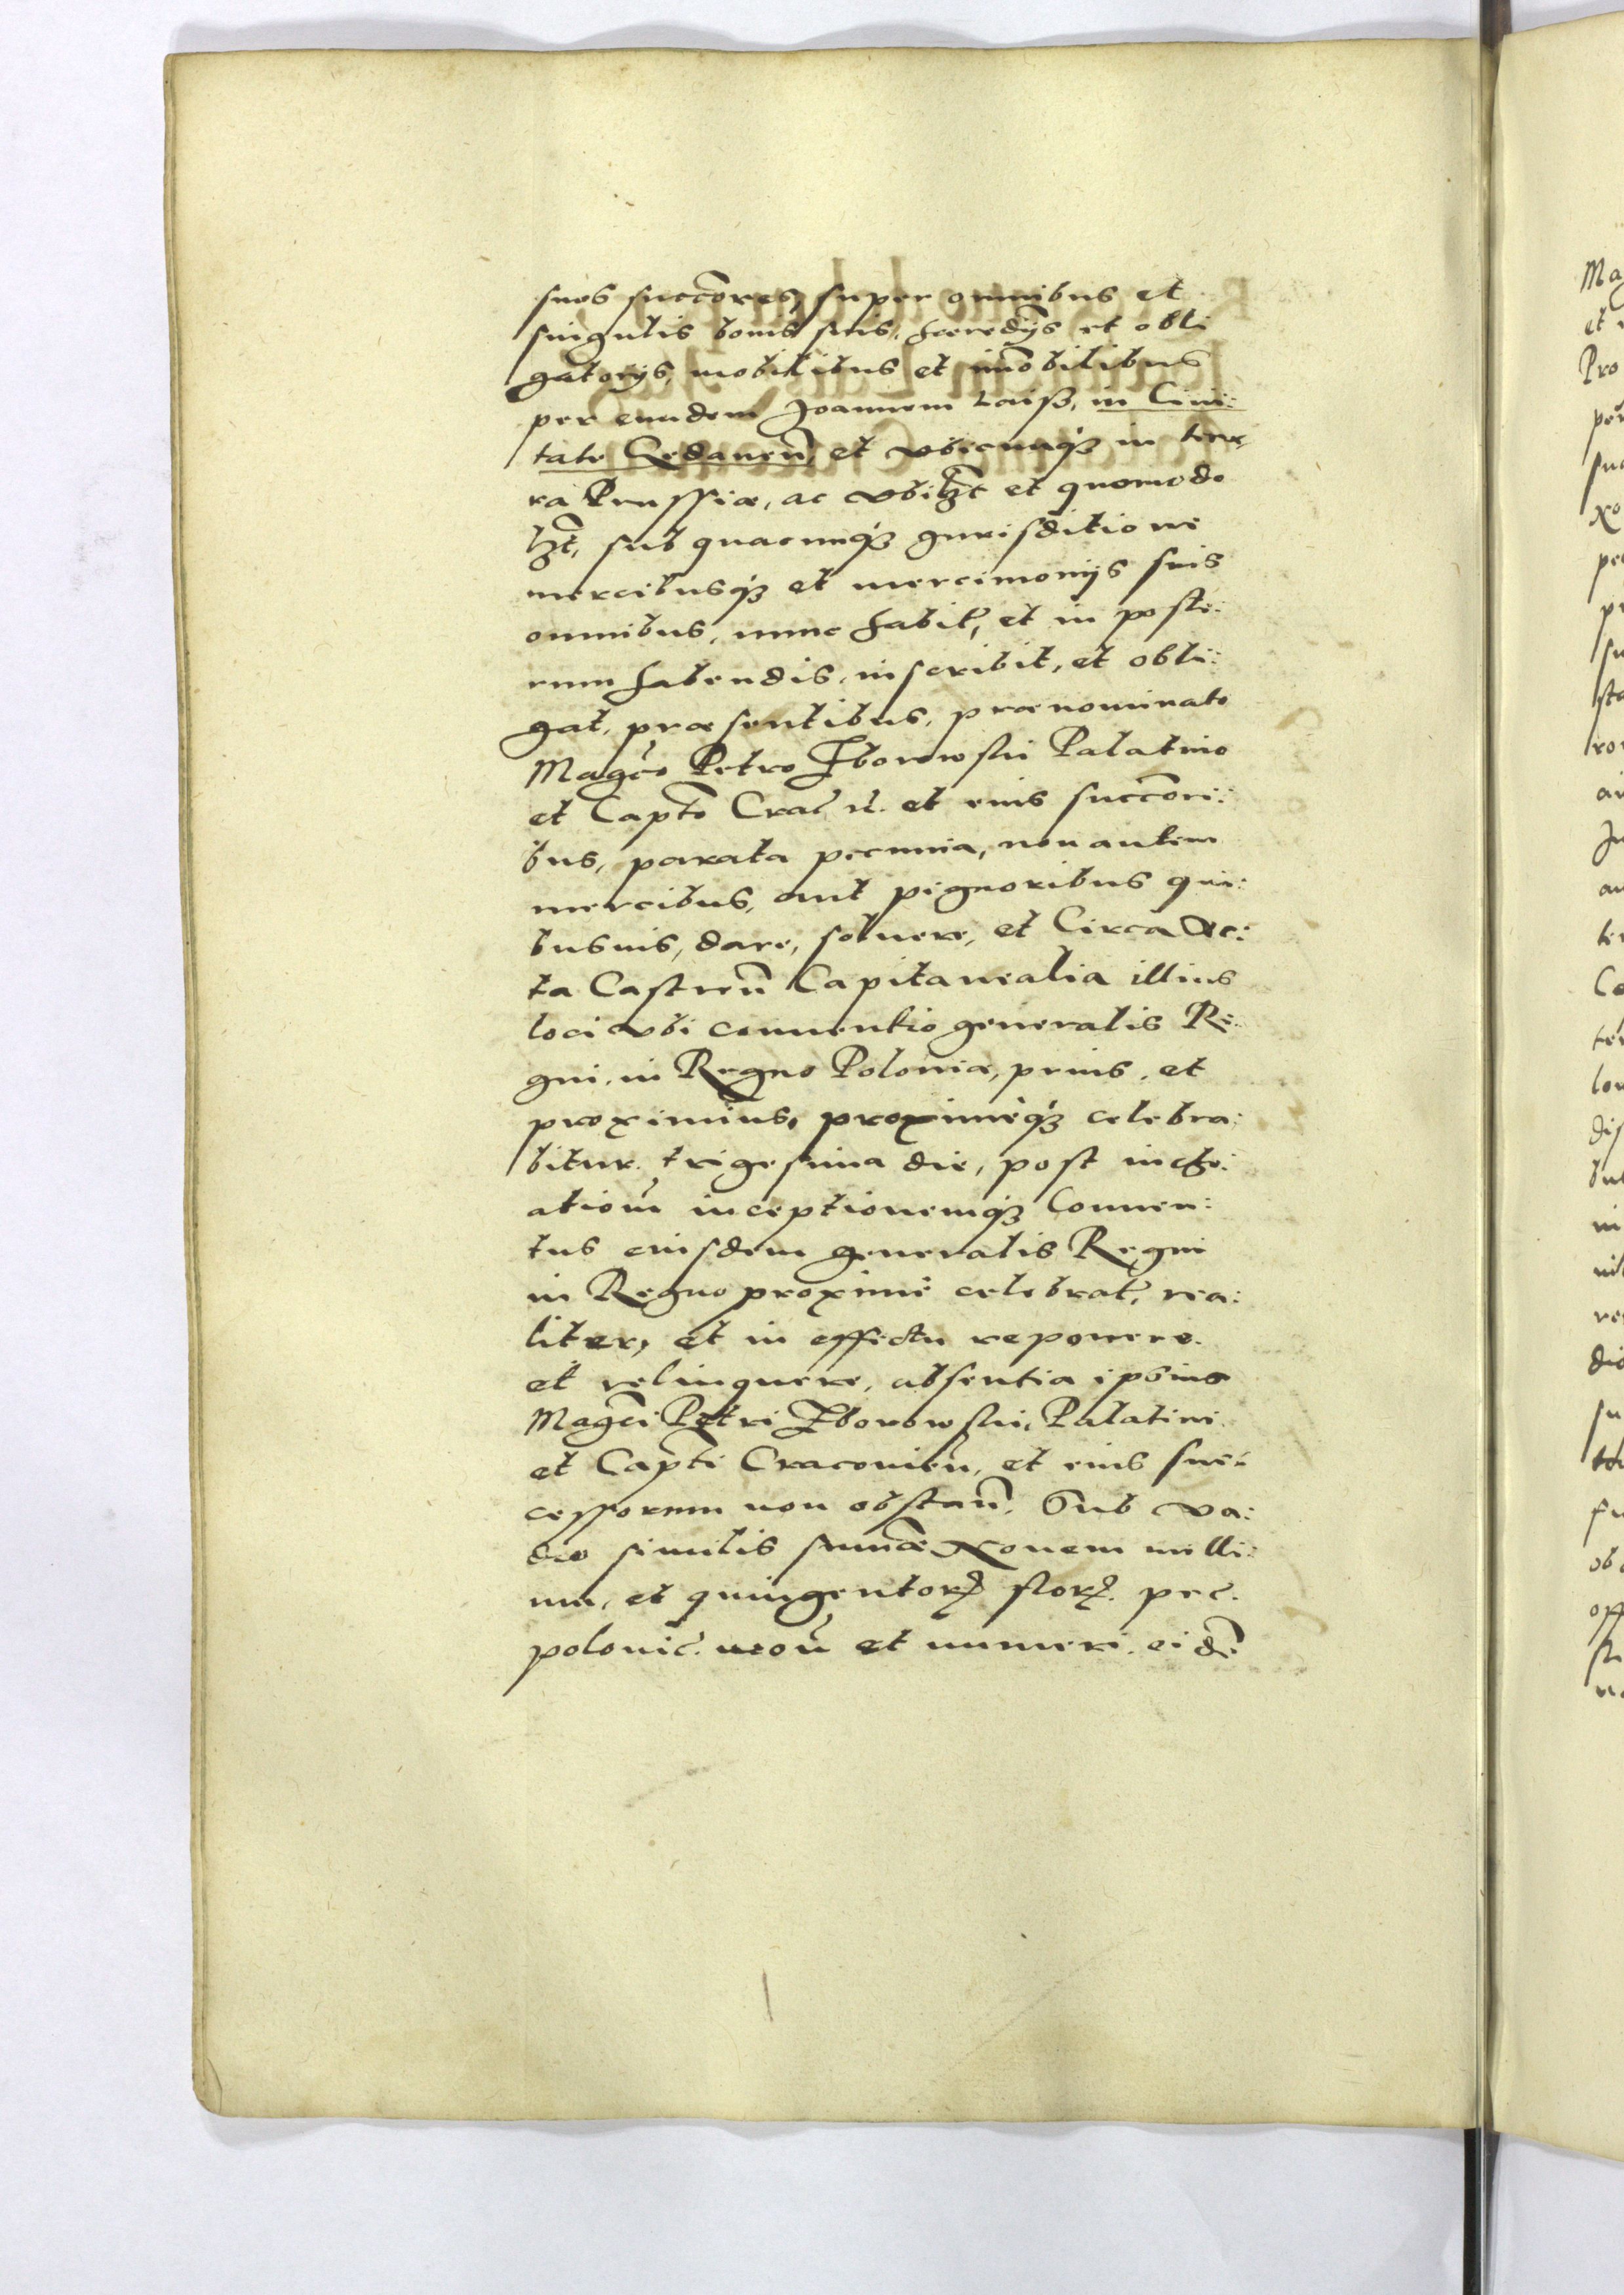 suos succōres, super omnibus et
singulis bonis suis, hæredijs et obli
gatorijs, mobilibus et im̄obilibus
per eundem Joannem Laisz, in Ciui:
tate Gedanen̄, et vbicunq3 in ter
ra Prussiæ, ac vbilʒt et quomodo
lʒt, sub quacunq3 jurisditione
mercibusq3 et mercimonijs suis
omnibus, nunc habit, et in poste:
rum habendis, inscribit, et obli:
gat, præsentibus, prænominato
Magc̄o Petro Zborowski Palatino
et Capto Crac̄ et eius succōri:
bus, parata pecunia, non autem
mercibus, aut pignoribus qui:
busuis, dare, soluere, et Circa Ac:
ta Castren̄ Capitanealia illius
loci vbi conuentio generalis Re:
gni, in Regno Poloniæ, prius, et
proximius, proximeq3 celebra:
bitur, trigesima die, post incho:
ationē inceptionemq3 Conuen:
tus eiusdem generalis Regni
in Regno proxime celebrat, rea:
liter, et in effectu reponere.
et relinquere, absentia ipsius
Magci Petri Zborowski, Palatini
et Capti Cracouien̄, et eius suc:
cessorum non obstan̄. Sub va:
dio similis sum̄æ Nouem milli:
um, et quingentorꝝ florꝝ. pec̄.
polonic̄. et numeri. eidē